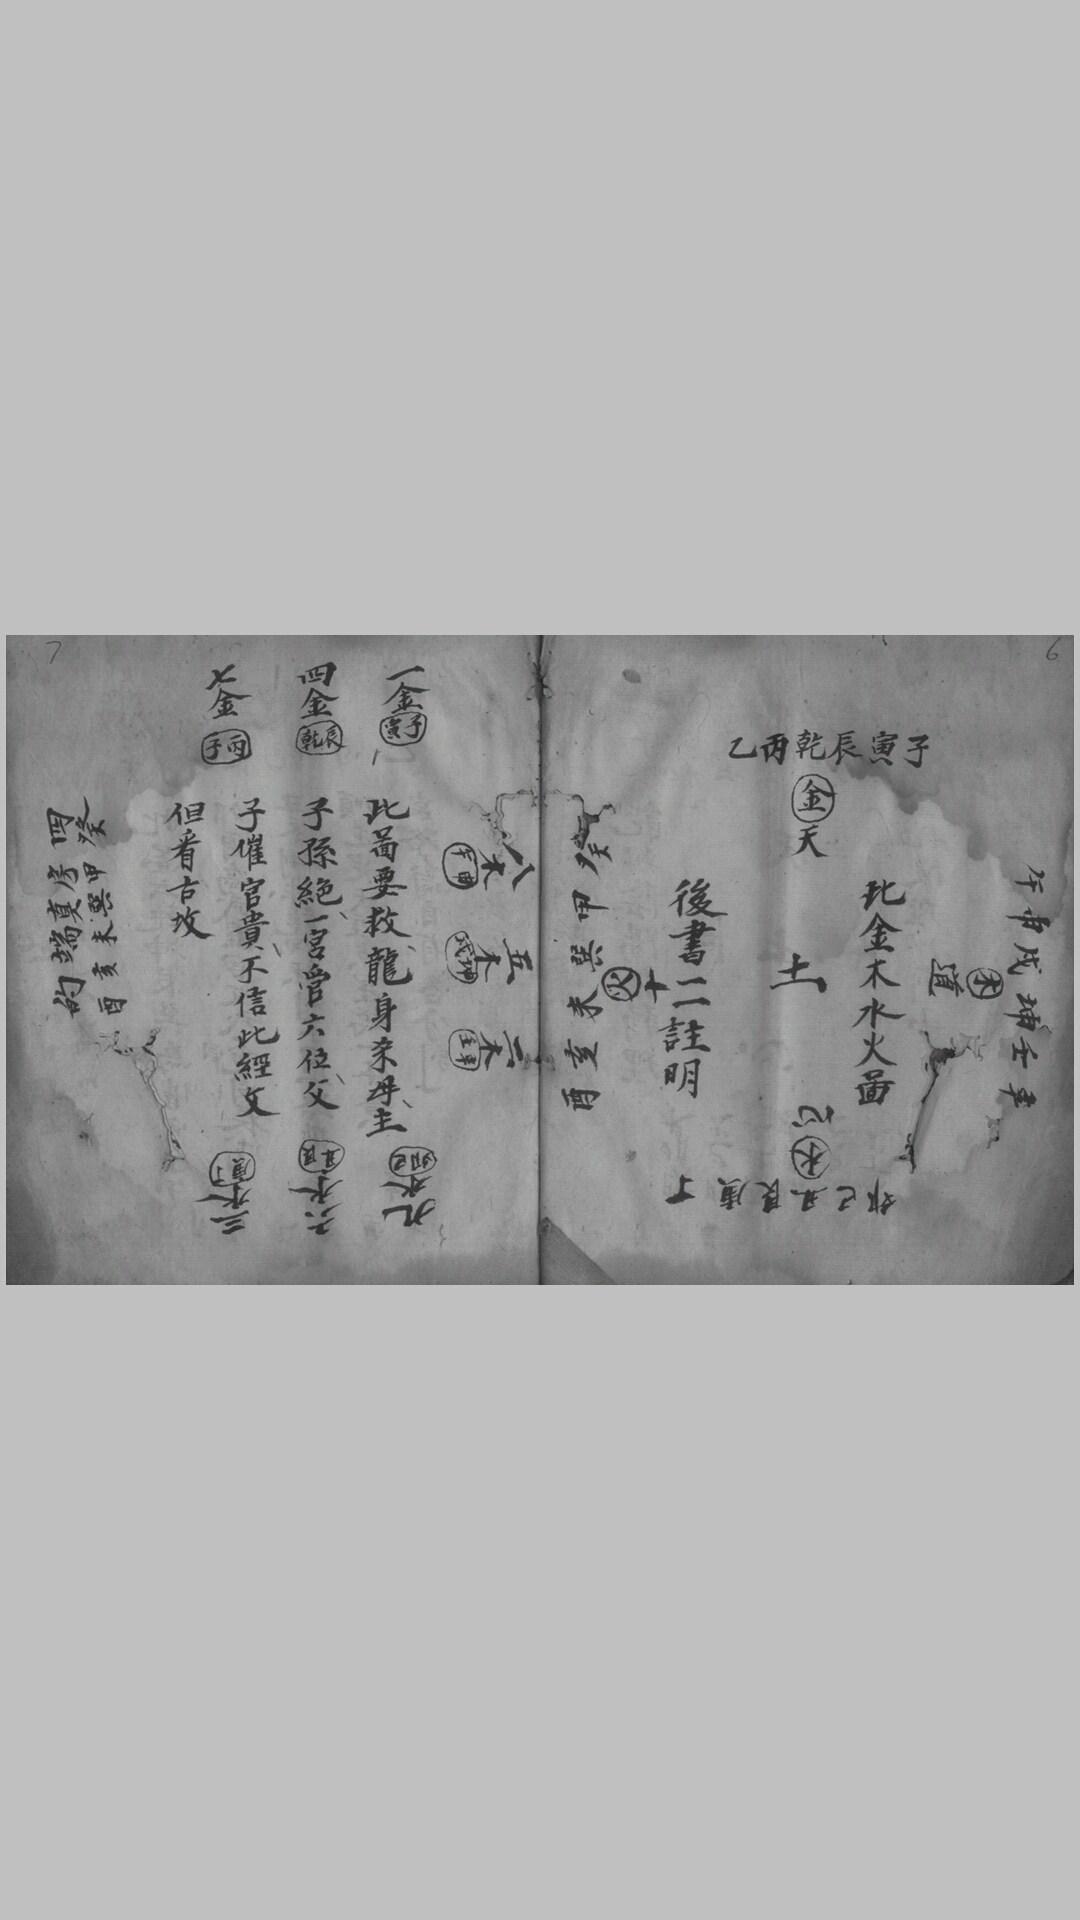 6
子寅辰乾丙乙
金
天
午申戌坤壬辛
木
道
此金木水火啚
土
後書一一註明
水
卯巳丑艮庚丁
火
癸甲巽未亥酉
7
一金
寅子
四金
乾辰
七金
子丙
八木
午申
五木
戌坤
二木
壬辛
此啚要救龍身
子孫絕一宮管六位父
子催官貴不信此經文
但看古坟
九水
卯巳
六水
丑艮
三水
庚丁
癸甲巽未亥酉
四房真端的